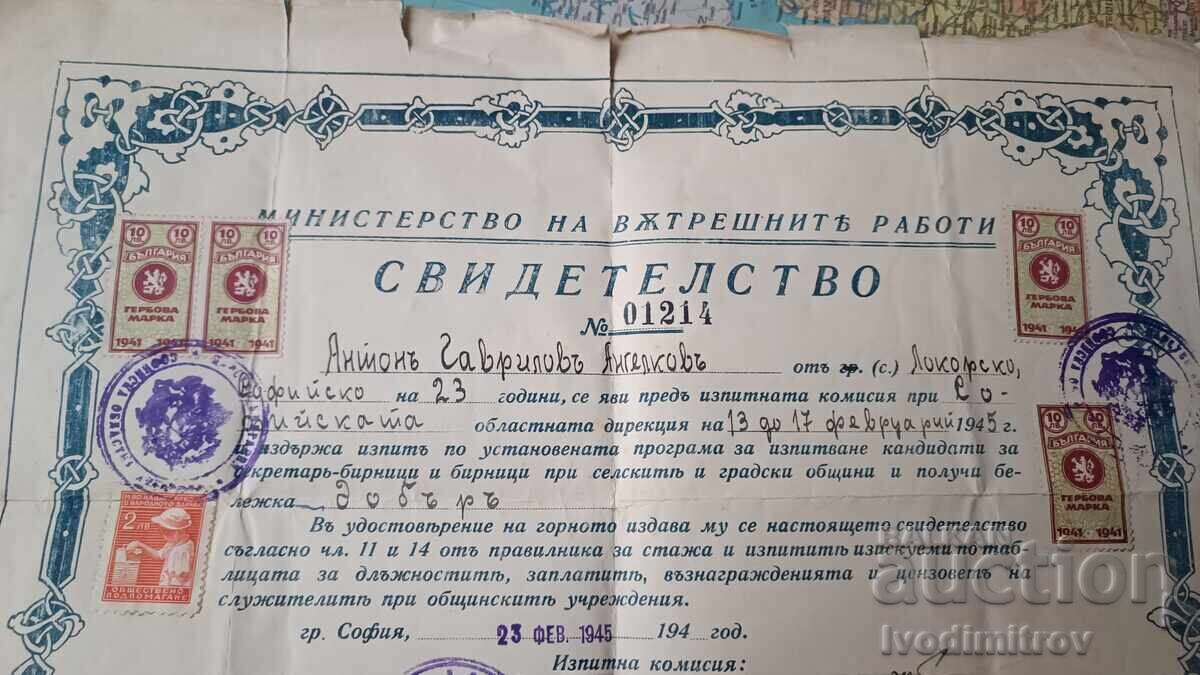 МИНИСТЕРСТВО НА ВѪТРЕШНИТѢ РАБОТИ
СВИДЕТЕЛСТВО
№ 01214
Антонъ Гавриловъ Ангелковъ отъ гр. (с.) Локорско,
Софийско на 23 години, се яви предъ изпитната комисия при Со-
фийската областната дирекция на 13 до 17 февруарий 1945 г.
издържа изпитъ по установената програма за изпитване кандидати за
секретарь-бирници и бирници при селскитѣ и градски общини и получи бе-
лежка Добъръ
Въ удостовѣрение на горното издава му се настоящето свидетелство
съгласно чл. 11 и 14 отъ правилника за стажа и изпититѣ изискуеми по таб-
лицата за длъжноститѣ, заплатитѣ, възнагражденията и цензоветѣ на
служителитѣ при общинскитѣ учреждения.
гр. София, 23 ФЕВ. 1945 194 год.
Изпитна комисия:
10 ЛВ. 10
БЪЛГАРИЯ
ГЕРБОВА
МАРКА
1941 1941
10 ЛВ. 10
БЪЛГАРИЯ
ГЕРБОВА
МАРКА
1941 1941
10 ЛВ. 10
БЪЛГАРИЯ
ГЕРБОВА
МАРКА
1941 1941
10 ЛВ. 10
БЪЛГАРИЯ
ГЕРБОВА
МАРКА
1941 1941
2 ЛВ
ОБЩЕСТВЕНО
ПОДПОМАГАНЕ
BALKAN
auction
Ivodimitrov